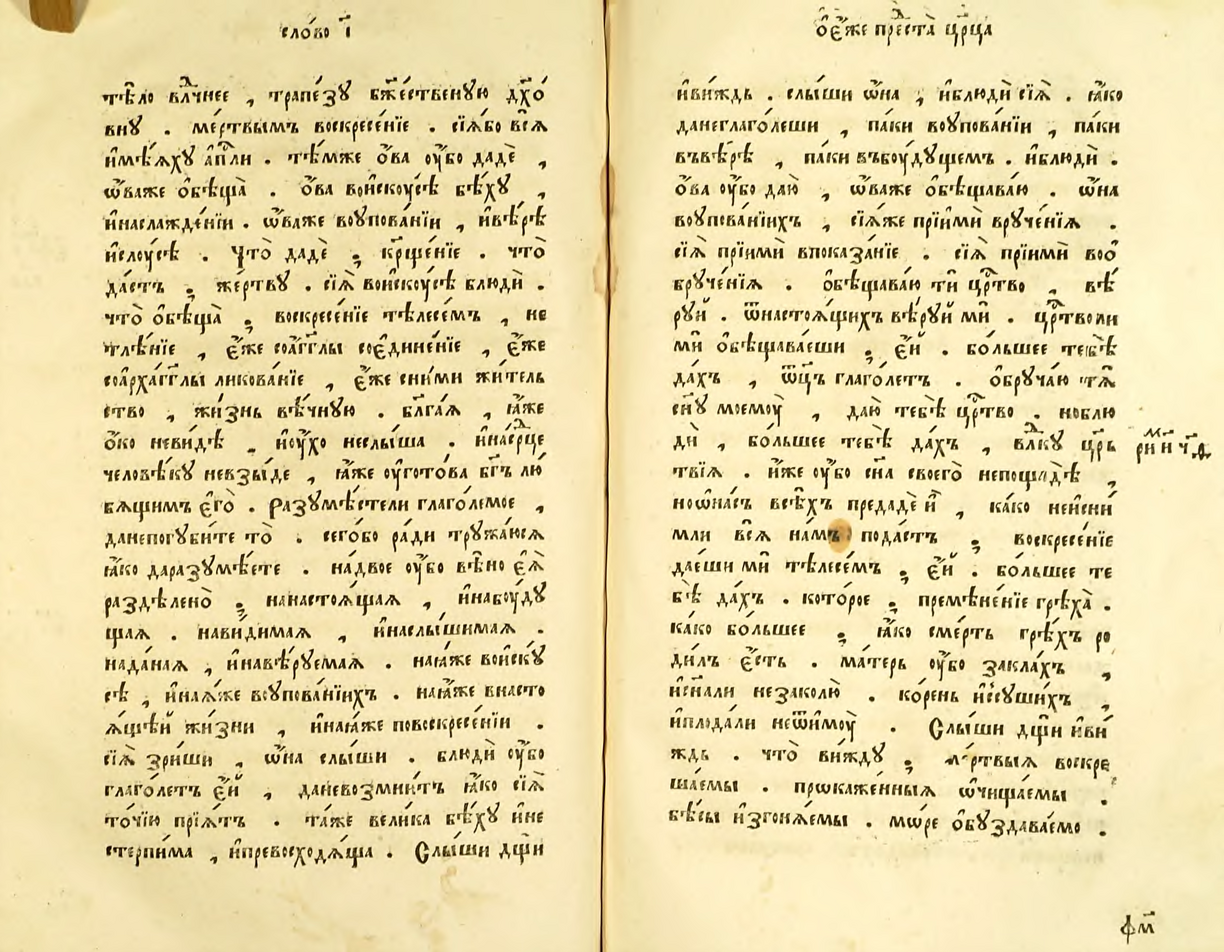 сло́во і҃
тѣ́ло влⷣчнее , трапе́зꙋ бж҃е́ственꙋю дх҃о́
внꙋ . ме́ртвымъ воскресе́нїе . сїѧ̑бо всѧ̑
и҆мѣ́ѧхꙋ а҆пⷭ҇ли . тѣ́мже ѻ҆́ва ᲂу҆́бо дадѐ ,
ѡ҆́важе ѻ҆бѣща̀ . ѻ҆́ва вои҆скꙋ́сѣ бѣ́хꙋ ,
и҆наслажде́нїи . ѡ҆́важе воꙋпова́нїи , и҆вѣ́рѣ
и҆слоу́сѣ . Что̀ дадѐ ; кр҃ще́нїе . что̀
да́стъ ; же́ртвꙋ . сїѧ̑ вои҆скоу́сѣ блюдѝ .
что̀ ѻ҆бѣща̀ ; воскресе́нїе тѣлесе́мъ , не
тлѣ́нїе , є҆́же соа҆́гг҃лы соє҆дине́нїе , є҆́же
соа҆рха́гг҃лы ликова́нїе , є҆́же сни́ми жи́тель
ство , жи́знь вѣ́чнꙋю . бл҃га́ѧ , ꙗ҆́же
ѻ҆́ко неви́дѣ , и҆оу҆́хо неслы́ша . и҆на́срⷣце
человѣ́кꙋ невзы́де , ꙗ҆́же оу҆гото́ва бг҃ъ лю́
бѧщимъ є҆го̀ . Разꙋмѣ́стели глаго́лемое ,
данепогꙋби́те то̀ . сего́бо ра́ди трꙋжа́юсѧ
ꙗ҆́ко даразꙋмѣ́ете . на́двое оу҆́бо вѣ́но є҆ѧ̀
раздѣлено̀ ; нанастоѧ́щаѧ , и҆набоу́дꙋ
щаѧ . нави́димаѧ , и҆наслы́шимаѧ .
нада́наѧ , и҆навѣ́рꙋемаѧ . наꙗ҆́же вои҆скꙋ́
сѣ , и҆наꙗ҆́же воꙋпова́нїихъ . наꙗ҆́же внасто
ѧ́щѣй жи́зни , и҆наꙗ҆́же повоскресе́нїи .
сїѧ̑ зри́ши , ѡ҆́на слы́ши . блюдѝ оу҆́бо
глаго́летъ є҆́й , даневозмни́тъ ꙗ҆́ко сїѧ̑
то́чїю прїѧ́тъ . та́же вели́ка бѣ́хꙋ и҆не
стерпи́ма , и҆превосходѧ́ща . Слы́ши дщ҃и
ѻ҆є҆́же прⷣе́ста цр҃ца
и҆ви́ждь . слы́ши ѡ҆́на , и҆блюдѝ сїѧ̑ . ꙗ҆́ко
данеглаго́леши , па́ки воꙋпова́нїи , па́ки
въвѣ́рѣ , па́ки въбоу́дꙋщемъ . и҆блюдѝ .
ѻ҆́ва оу҆́бо даю̀ , ѡ҆́важе ѻ҆бѣщава́ю . ѡ҆́на
воꙋпова́нїихъ , сїѧ̑же прїимѝ врꙋче́нїѧ .
сїѧ̑ прїимѝ впоказа́нїе . сїѧ̑ прїимѝ воѻ҆
брꙋче́нїѧ . ѻ҆бѣщава́ю тѝ црⷭ҇тво , вѣ́
рꙋй . ѿнастоѧ́щихъ вѣ́рꙋй мѝ . црⷭ҇тволи
мѝ ѻ҆бѣщава́еши ; є҆́й . бо́льшее тебѣ̀
да́хъ , ѿц҃ъ глаго́летъ . ѻ҆брꙋча́ю тѧ̀
сн҃ꙋ моемоу̀ , даю̀ тебѣ̀ црⷭ҇тво . ноблю
дѝ , бо́льшее тебѣ̀ да́хъ , влⷣкꙋ црⷭ҇
твїѧ . и҆́же оу҆́бо сн҃а своего̀ непощадѣ̀ ,
ноѡ҆на́съ всѣ́хъ предадѐ и҆̀ , ка́ко неи҆сни́
мли всѧ̑ на́мъ пода́стъ ; воскресе́нїе
дае́ши мѝ тѣлесе́мъ ; є҆́й . бо́льшее те
бѣ̀ да́хъ . кото́рое ; премѣне́нїе грѣха̀ .
ка́ко бо́льшее ; ꙗ҆́ко сме́рть грѣ́хъ ро
ди́лъ є҆́сть . ма́терь оу҆́бо закла́хъ ,
и҆сн҃али незаколю̀ . ко́рень и҆зсꙋши́хъ ,
и҆плода́ли неѿимоу̀ . Слы́ши дщ҃и и҆ви́
ждь . что̀ ви́ждꙋ ; ме́ртвыѧ воскре
ша́емы . прѡкаже́нныѧ ѡ҆чища́емы .
бѣ́сы и҆згонѧ́емы . мѡ́ре ѻ҆бꙋздава́емо .
фм҃